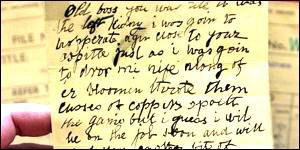 Old boss you was rite it was
the left kidny i was goin to
hoperate agin close to your
ospitle just as i was goin
to dror mi nife along of
er bloomin throte them
cusses of coppers spoilt
the game but i guess i wil
be on the job soon and will
another bit of